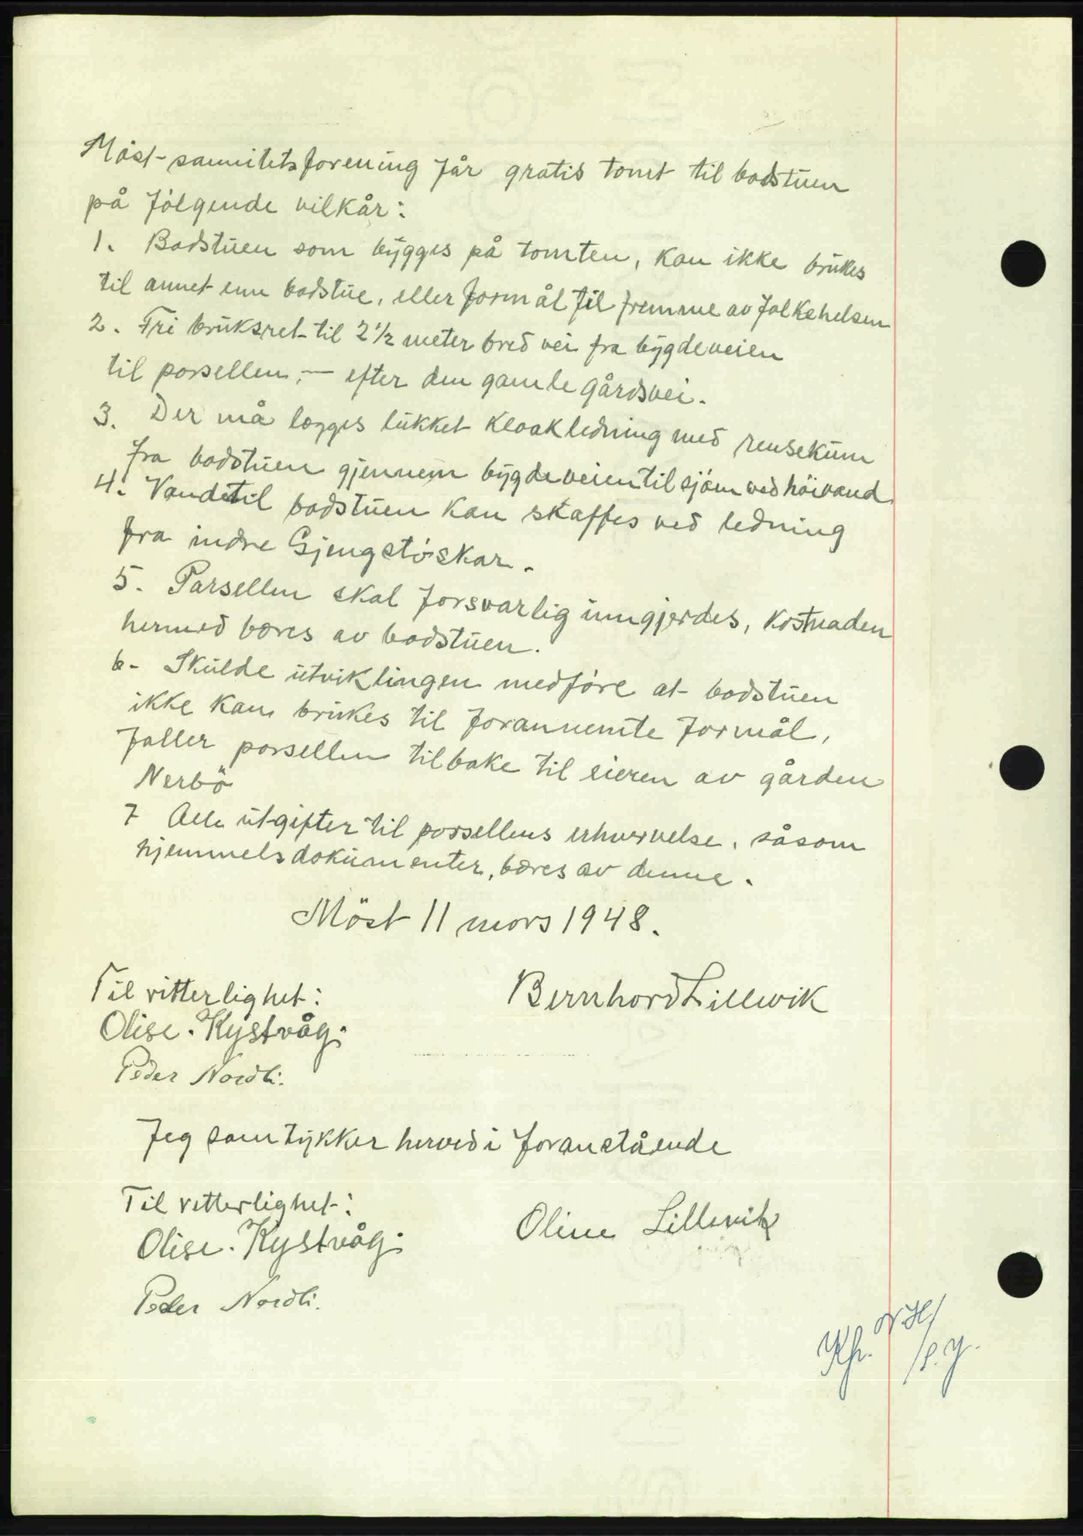 Möst- sannitetsforening får gratis tomt til badstuen
på følgende vilkår:
1. Badstuen som bygges på tomten, kan ikke brukes
til annet enn badstue, eller formål til fremme av folkehelsen
2. Fri bruksret til 2½ meter bred vei fra bygdeveien
til parsellen, — efter den gamle gårdsvei.
3. Der må legges lukket kloakledning med rensekum
fra badstuen gjennem bygdeveien til sjøen ved høivand
4. Vandet til badstuen kan skaffes ved ledning
fra indre Gjengstöskar.
5. Parsellen skal forsvarlig inngjerdes, kostnaden
hermed bæres av badstuen.
6- Skulde utviklingen medføre at badstuen
ikke kan brukes til forannemte formål,
faller parsellen tilbake til eieren av gården
Nerbö
7 Alle utgifter til parsellens erhvervelse, såsom
hjemmelsdokumenter, bæres av denne.
Möst 11 mars 1948.
Til vitterlighet: Bernhard Lillevik
Olise. Kystvåg.
Peder Nordli.
Jeg samtykker herved i foranstående
Til vitterlighet: Oline Lillevik
Olise. Kystvåg.
Peder Nordli.
Kfr.